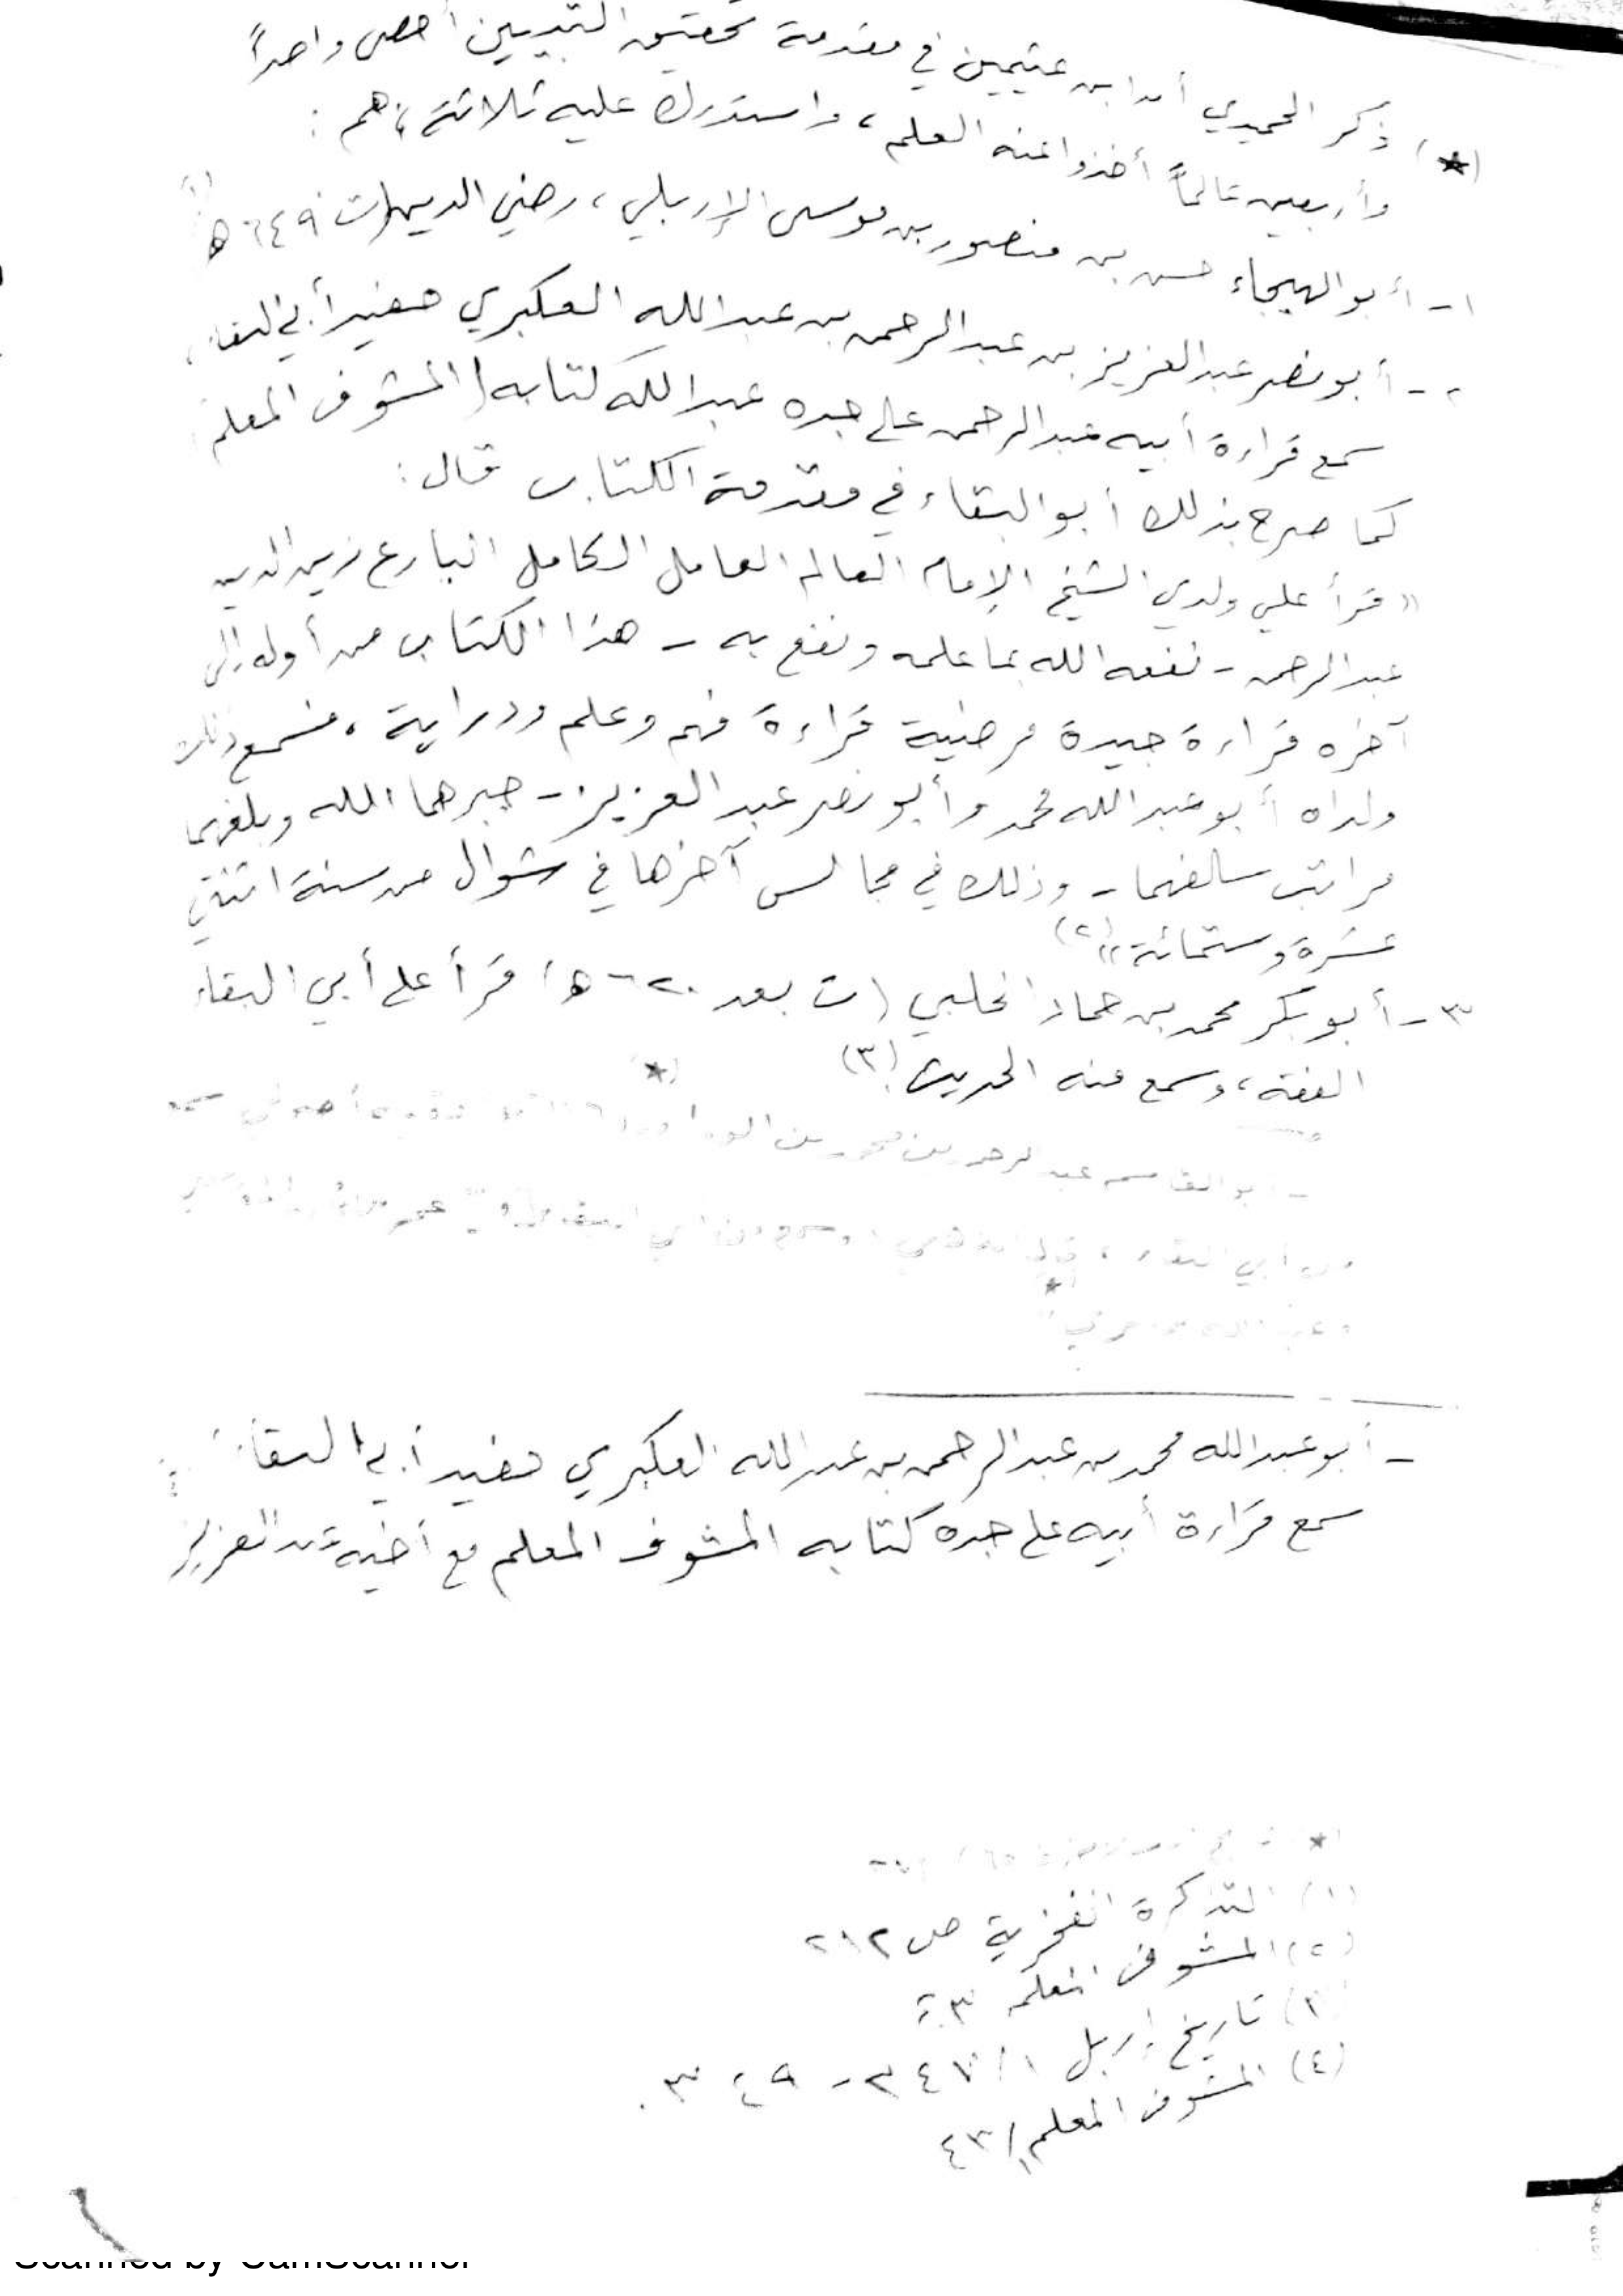 (*) ذكر الحميدي أن ابن عثيمين في مقدمة تحقيق التبيين أحصى واحداً
وأربعين عالماً أخذوا عنه العلم، واستدرك عليه ثلاثة، هم:
١- أبو الهيجاء حسن بن منصور بن موسى الإربلي، رضي الدين (ت ٦٤٩ هـ) (١)
٢- أبو نصر عبد العزيز بن عبد الرحمن بن عبد الله العكبري حفيد أبي البقاء،
سمع قراءة أبيه عبد الرحمن على جده عبد الله كتابه (المشوف المعلم
كما صرح بذلك أبو البقاء في مقدمة الكتاب قال:
«قرأ علي ولدي الشيخ الإمام العالم العامل الكامل البارع زين الدين
عبد الرحمن - نفعه الله بما علمه ونفع به - هذا الكتاب من أوله إلى
آخره قراءة جيدة مرضية قراءة فهم وعلم ودراية، فسمع ذلك
ولداه أبو عبد الله محمد وأبو نصر عبد العزيز - جبرهما الله وبلغهما
مراتب سالفهما - وذلك في مجالس آخرها في شوال من سنة اثنتي
عشرة وستمائة» (٢)
٣- أبو بكر محمد بن حماد الحلبي (ت بعد ٦٢٠ هـ) قرأ على أبي البقاء
الفقه، وسمع منه الحديث (٣)
(*)
- أبو القاسم عبد الرحمن بن
من أبي البقاء
- أبو عبد الله محمد بن عبد الرحمن بن عبد الله العكبري حفيد أبي البقاء
سمع قراءة أبيه على جده كتابه المشوف المعلم مع أخيه عبد العزيز
(١) التذكرة الفخرية ص ٢١٢
(٢) المشوف المعلم
(٣) تاريخ إربل ١/ ٣٤٧ - ٣٤٩.
(٤) المشوف المعلم ١/ ٤٣
Scanned by CamScanner